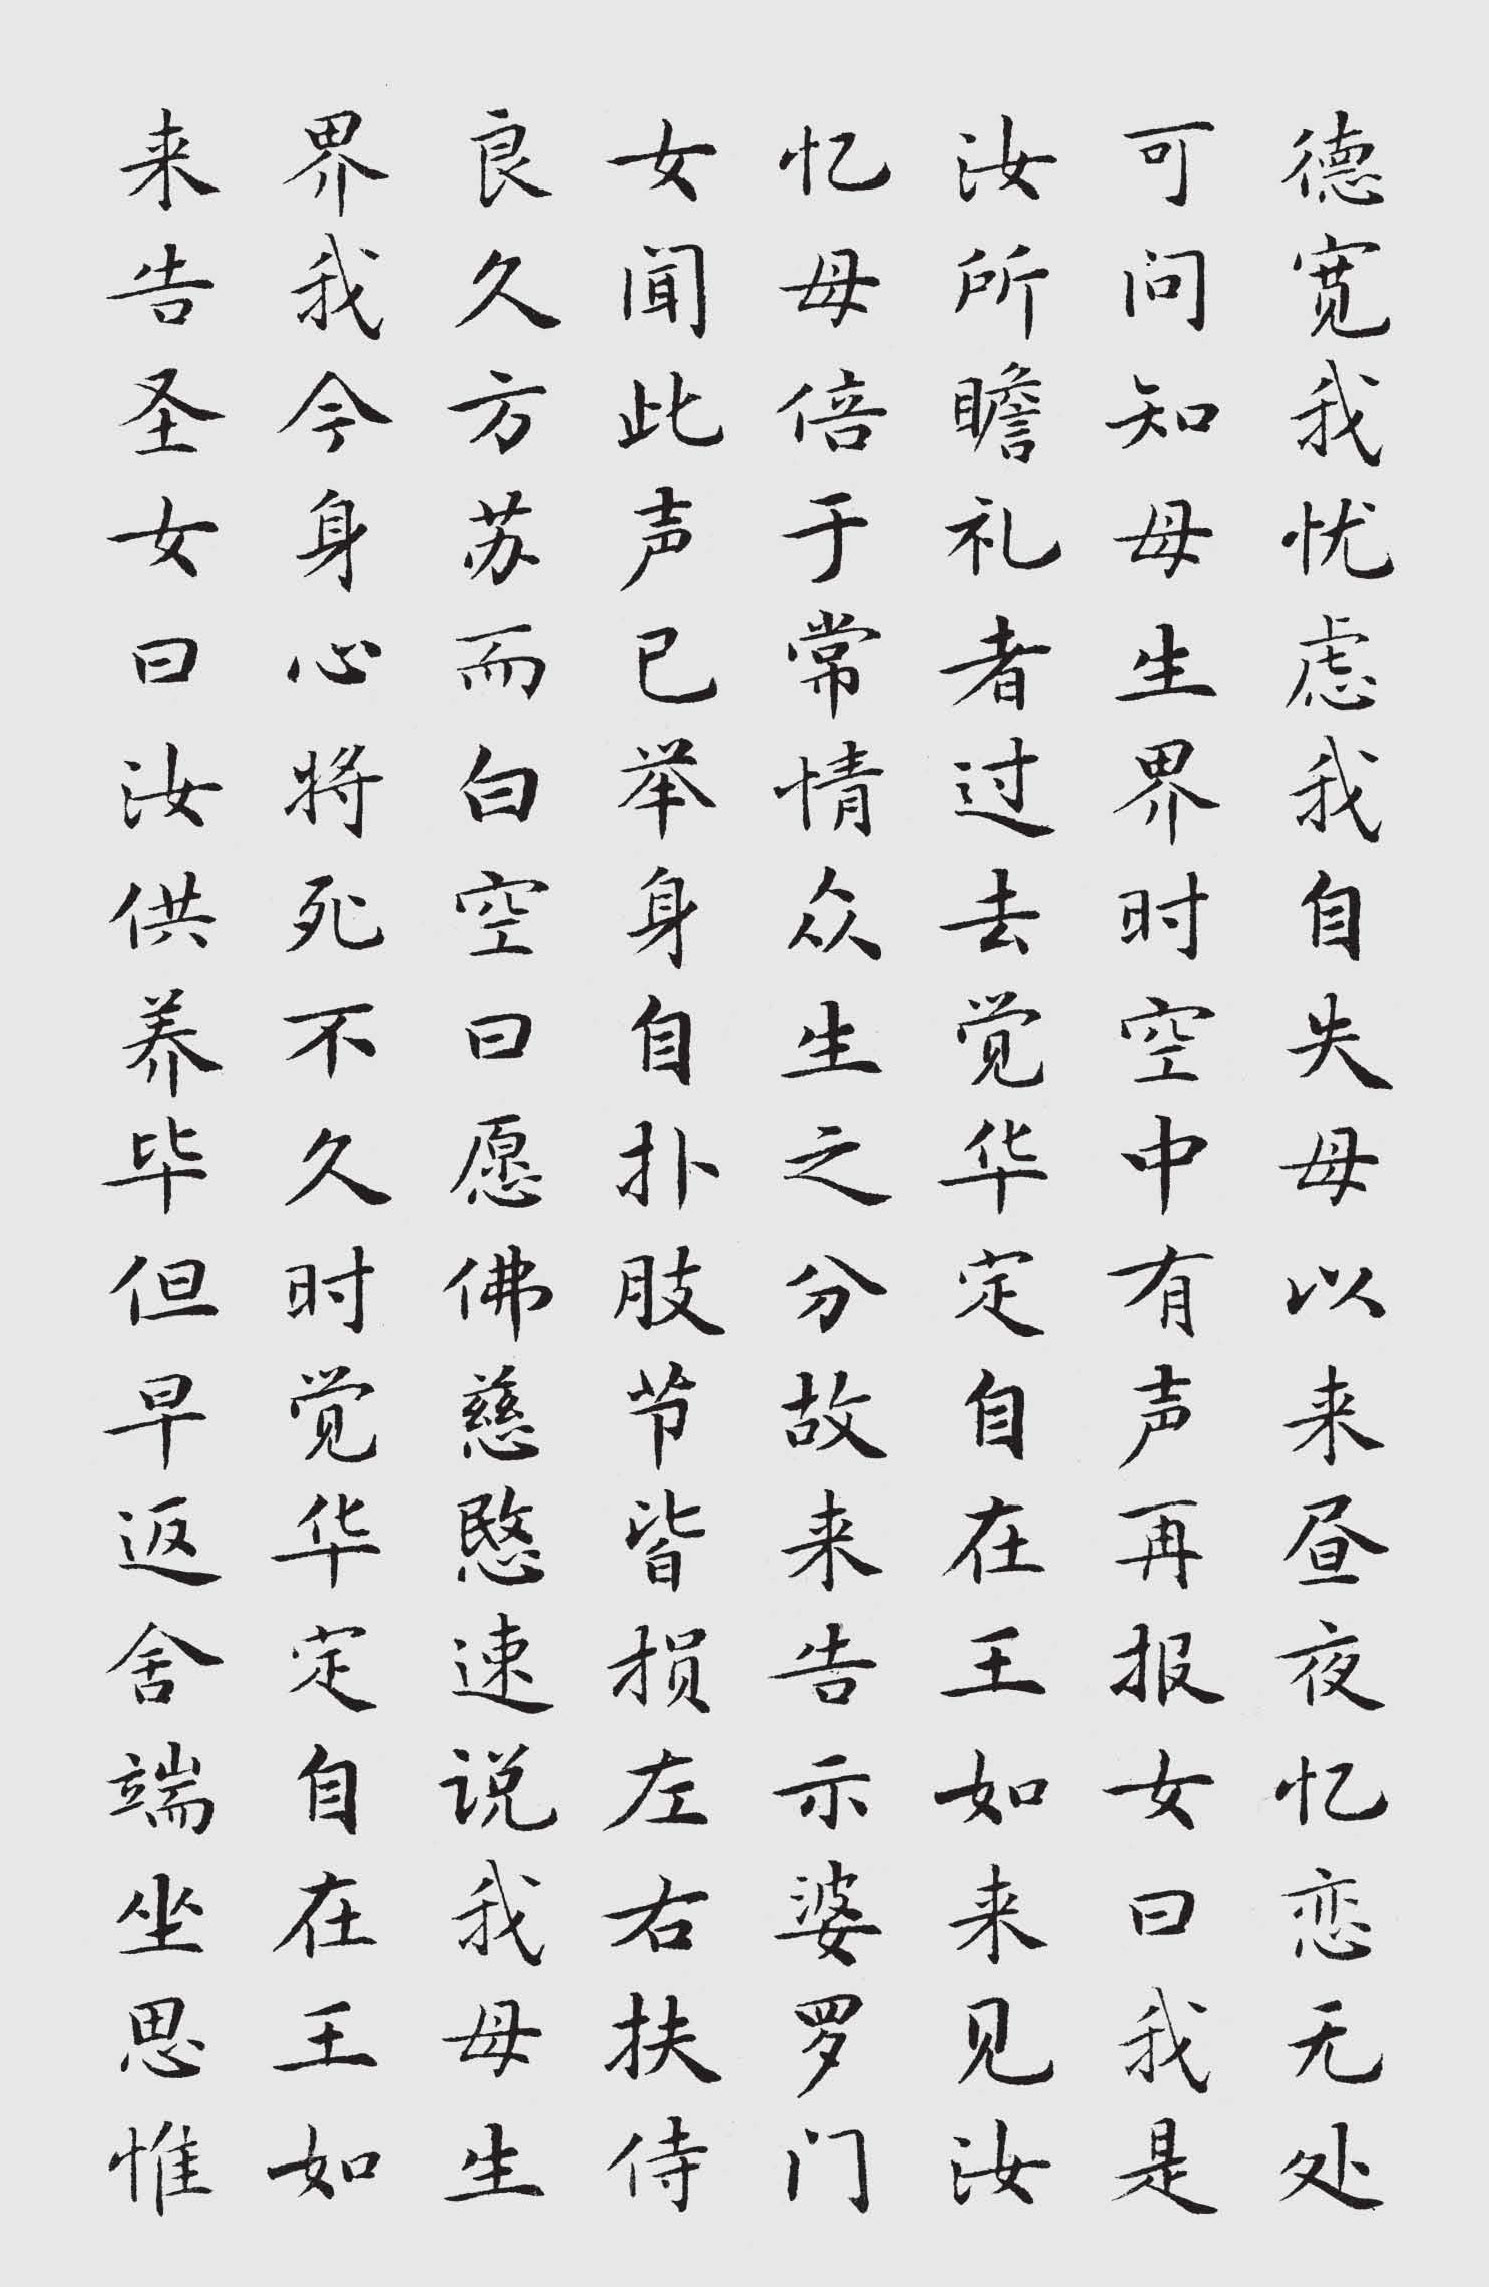 德宽我忧虑我自失母以来昼夜忆恋无处
可问知母生界时空中有声再报女曰我是
汝所瞻礼者过去觉华定自在王如来见汝
忆母倍于常情众生之分故来告示婆罗门
女闻此声已举身自扑肢节皆损左右扶侍
良久方苏而白空曰愿佛慈愍速说我母生
界我今身心将死不久时觉华定自在王如
来告圣女曰汝供养毕但早返舍端坐思惟